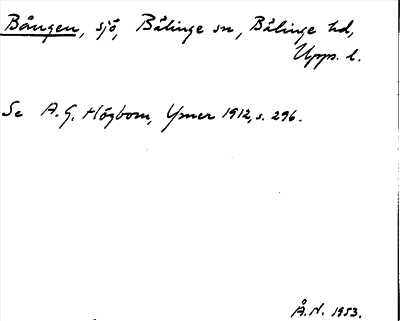 Bången, sjö, Bälinge sn, Bälinge hd,
Upps. l.
Se A. G. Högbom, Ymer 1912, s. 296.
Å. N. 1953.